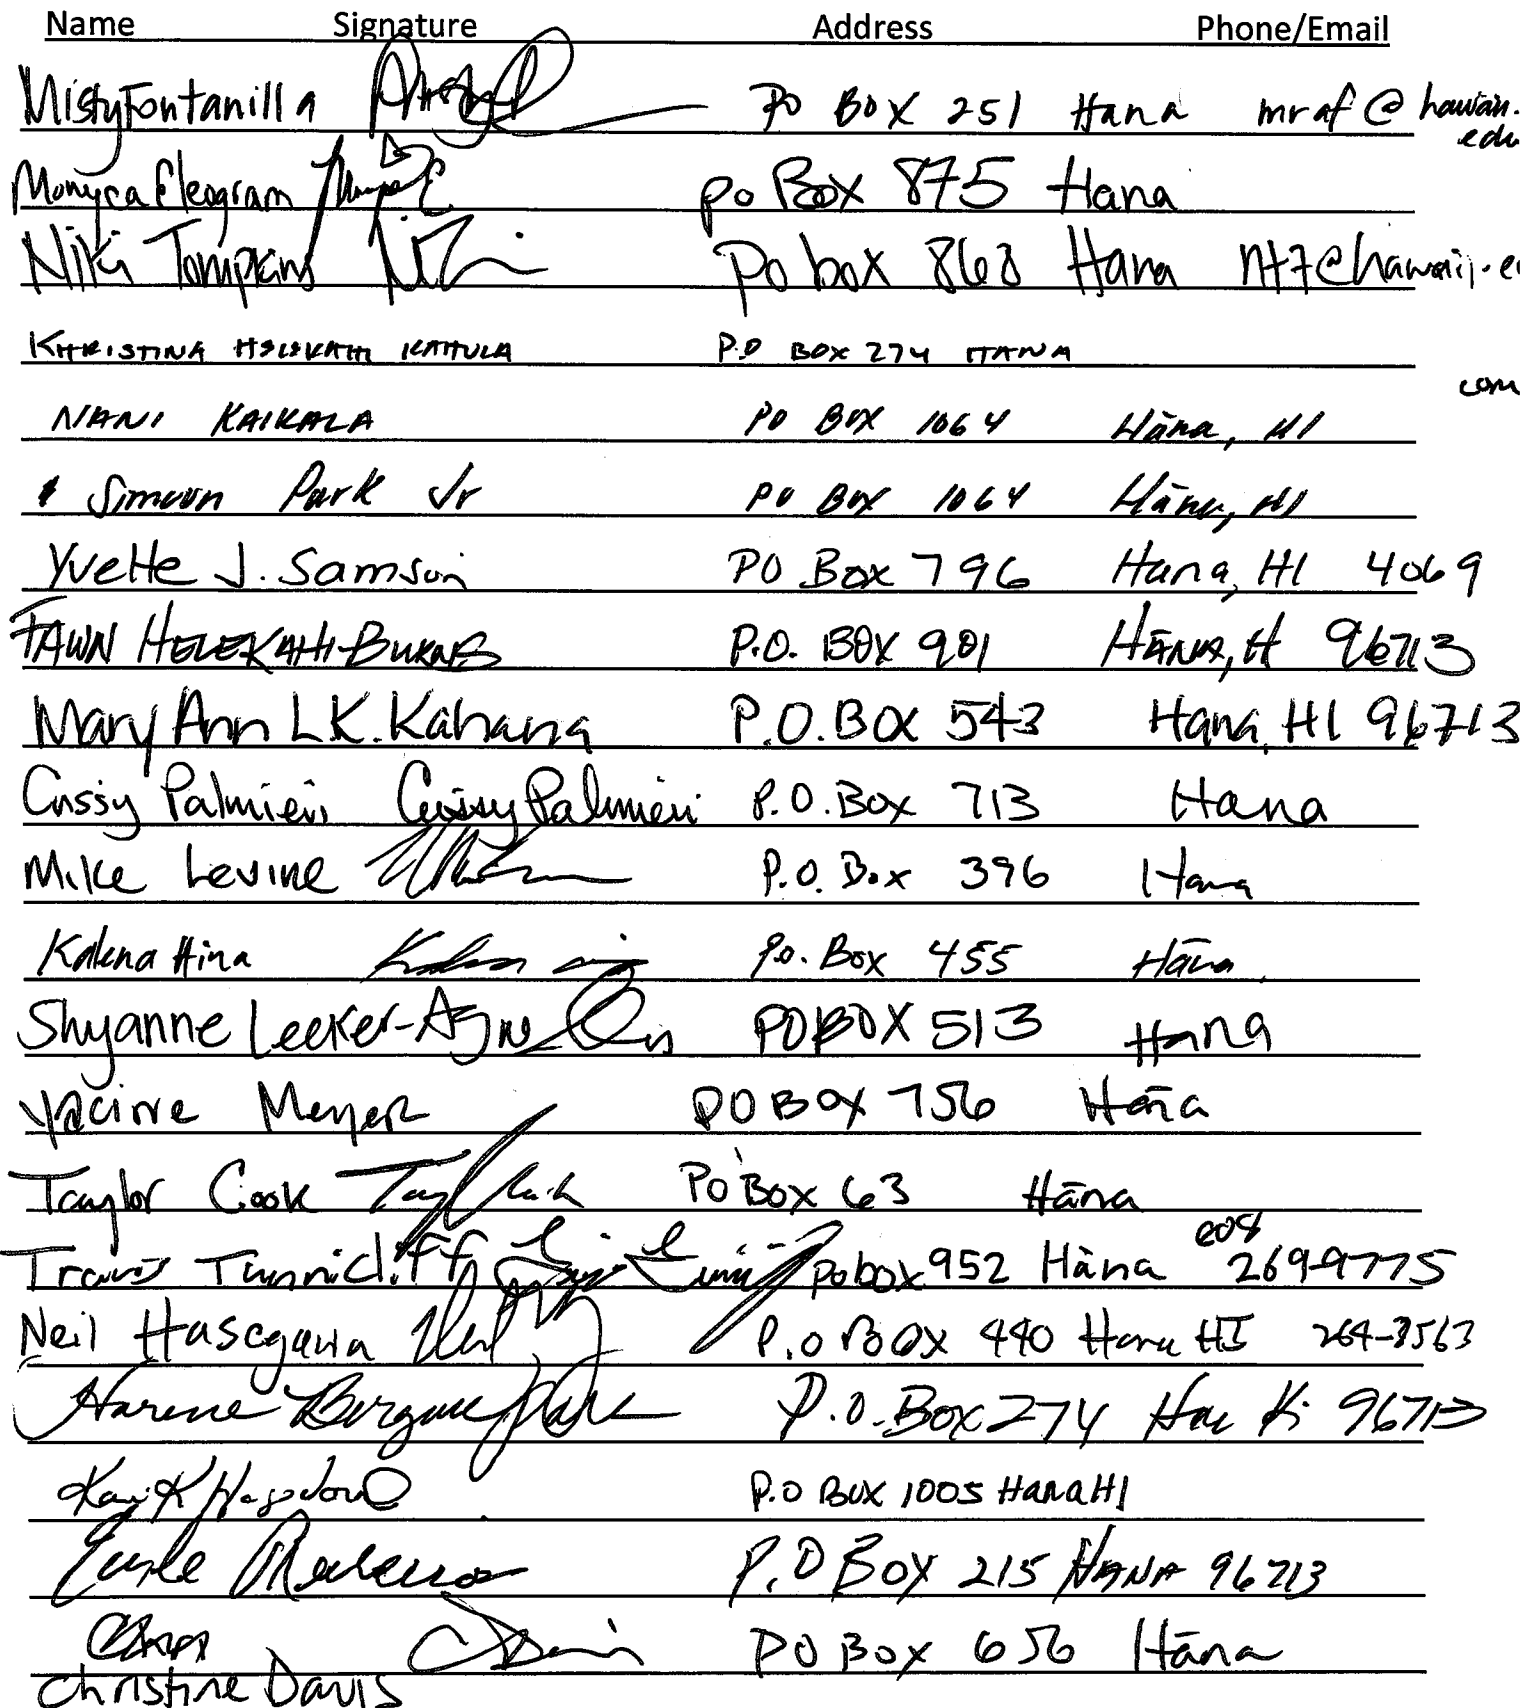 Name Signature Address Phone/Email
Misty Fontanilla PO BOX 251 Hana mraf@hawaii.
edu
Monyca Eleogram po Box 875 Hana
Niki Tompkins Po box 868 Hana nt7@hawaii.e
KHRISTINA KAHULA P.O BOX 274 HANA
com
NANI KAIKALA PO BOX 1064 Hāna, HI
Simeon Park Jr PO BOX 1064 Hāna, HI
Yvette J. Samson PO Box 796 Hana, HI 4069
FAWN HELEKAHI-BURNS P.O. BOX 901 HĀNA, H 96713
Mary Ann L.K. Kahana P.O. BOX 543 Hana, HI 96713
Cassy Palmieri Cassy Palmieri P.O. Box 713 Hana
Mike Levine P.O. Box 396 Hana
Kalena Hina P.O. Box 455 Hāna
Shyanne Leeker- PO BOX 513 Hana
Meyer PO BOX 756 Hāna
Taylor Cook PO Box 63 Hāna
808
Travis Tunnicliff po box 952 Hāna 269-9775
Neil Hasegawa P.O BOX 440 Hana HI 264-3563
P.O. Box 274 96713
P.O BOX 1005 Hana HI
P.O BOX 215 HANA 96713
PO Box 656 Hāna
Christine Davis